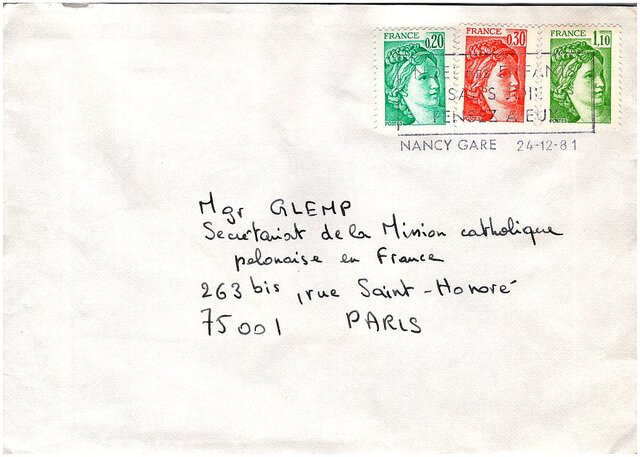 FRANCE 0,20
FRANCE 0,30
FRANCE 1,10
POSTES
POSTES
SANS
PENSEZ A EUX
NANCY GARE 24-12-81
Mgr GLEMP
Secrétariat de la Mission catholique
polonaise en France
263 bis, rue Saint-Honoré
75001 PARIS